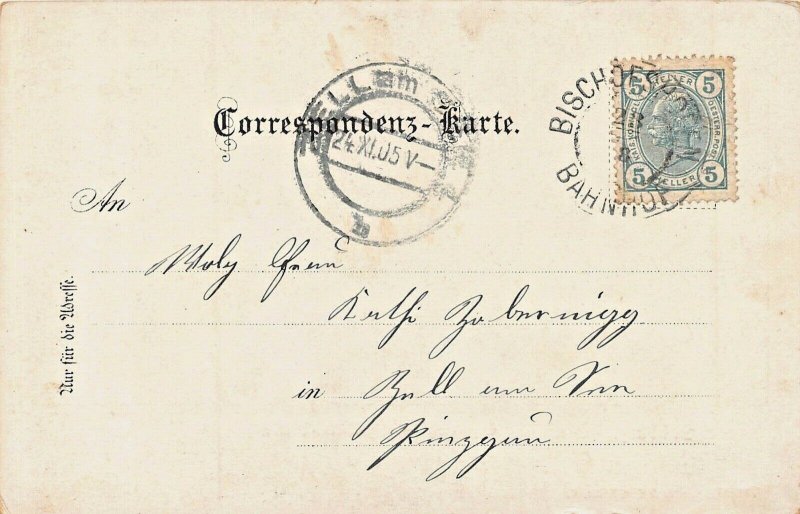 Correspondenz-Karte.
ZELL am SEE
24.XI.05 V—
a
BISCHOFSHOFEN
BAHNHOF
5 HELLER 5
KAIS. KÖNIGL.
ÖSTERR. POST
5 HELLER 5
An
Frau
Kathi
in Zell am See
Pinzgau
Nur für die Adresse.